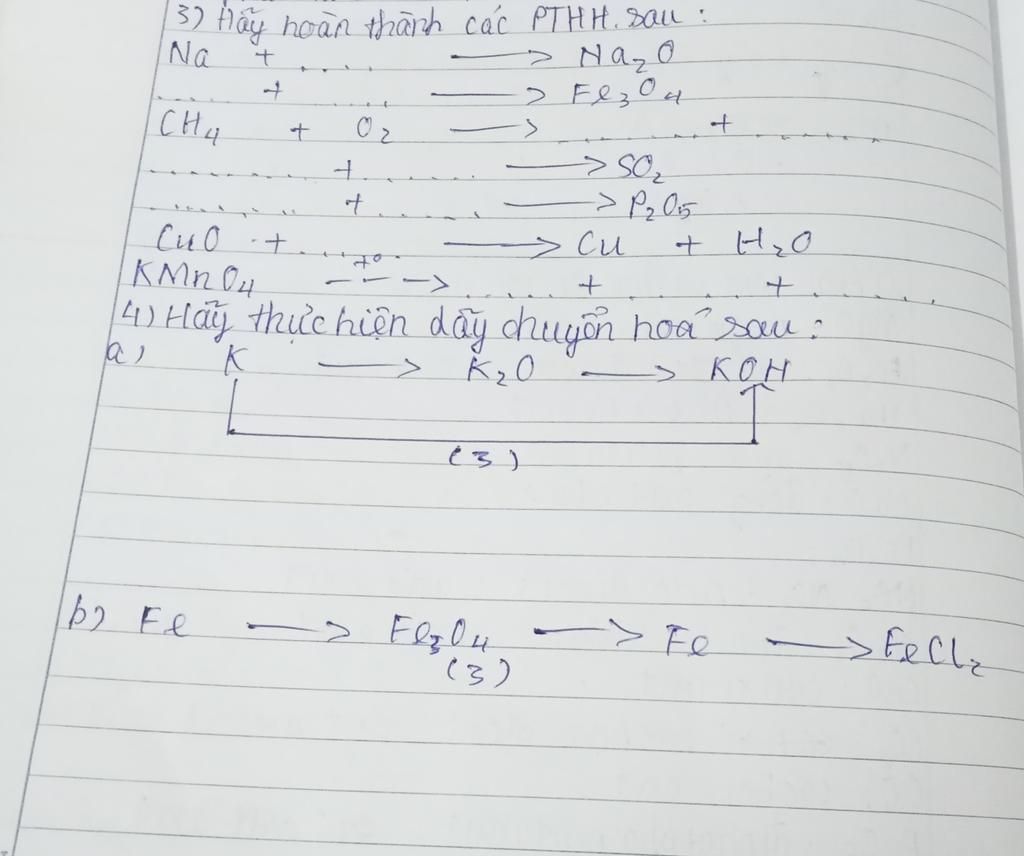 3) Hãy hoàn thành các PTHH. sau :
Na + .... ⟶ Na₂O
..... + ...... ⟶ Fe₃O₄
CH₄ + O₂ ⟶ ........ + ........
........ + ....... ⟶ SO₂
........ + ....... ⟶ P₂O₅
CuO + ....... ⟶ Cu + H₂O
KMnO₄ --t°--> ...... + ...... + .......
4) Hãy thực hiện dãy chuyển hoá sau :
a) K ⟶ K₂O ⟶ KOH
(3)
b) Fe ⟶ Fe₃O₄ ⟶ Fe ⟶ FeCl₂
(3)